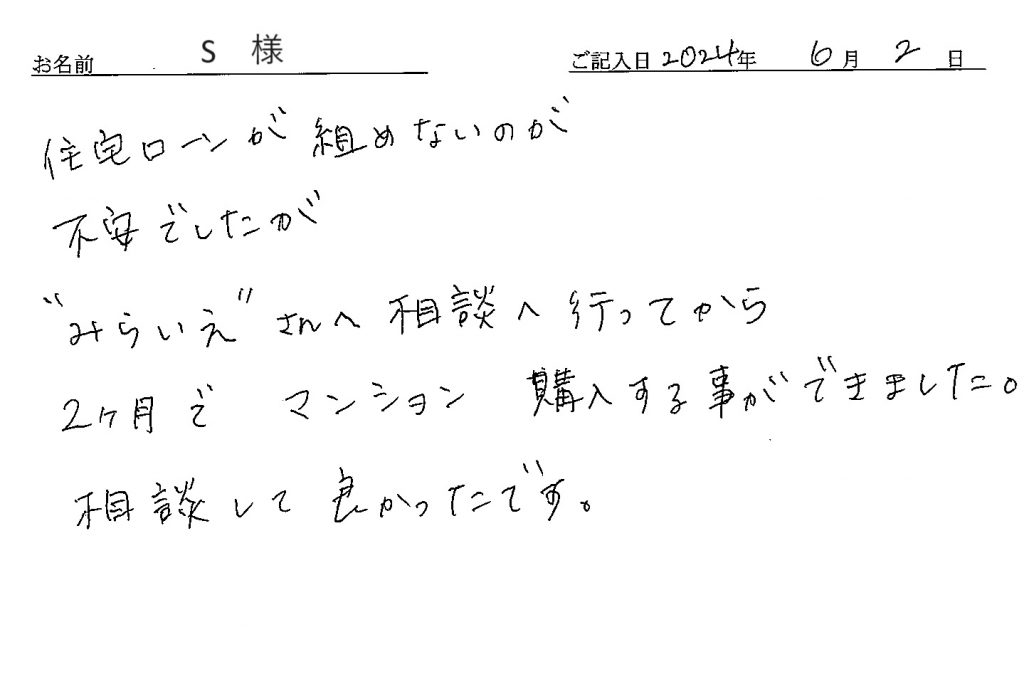 お名前 S 様 ご記入日 2024年 6月 2日
住宅ローンが組めないのが
不安でしたが
“みらいえ”さんへ相談へ行ってから
2ヶ月で マンション 購入する事ができました。
相談して良かったです。